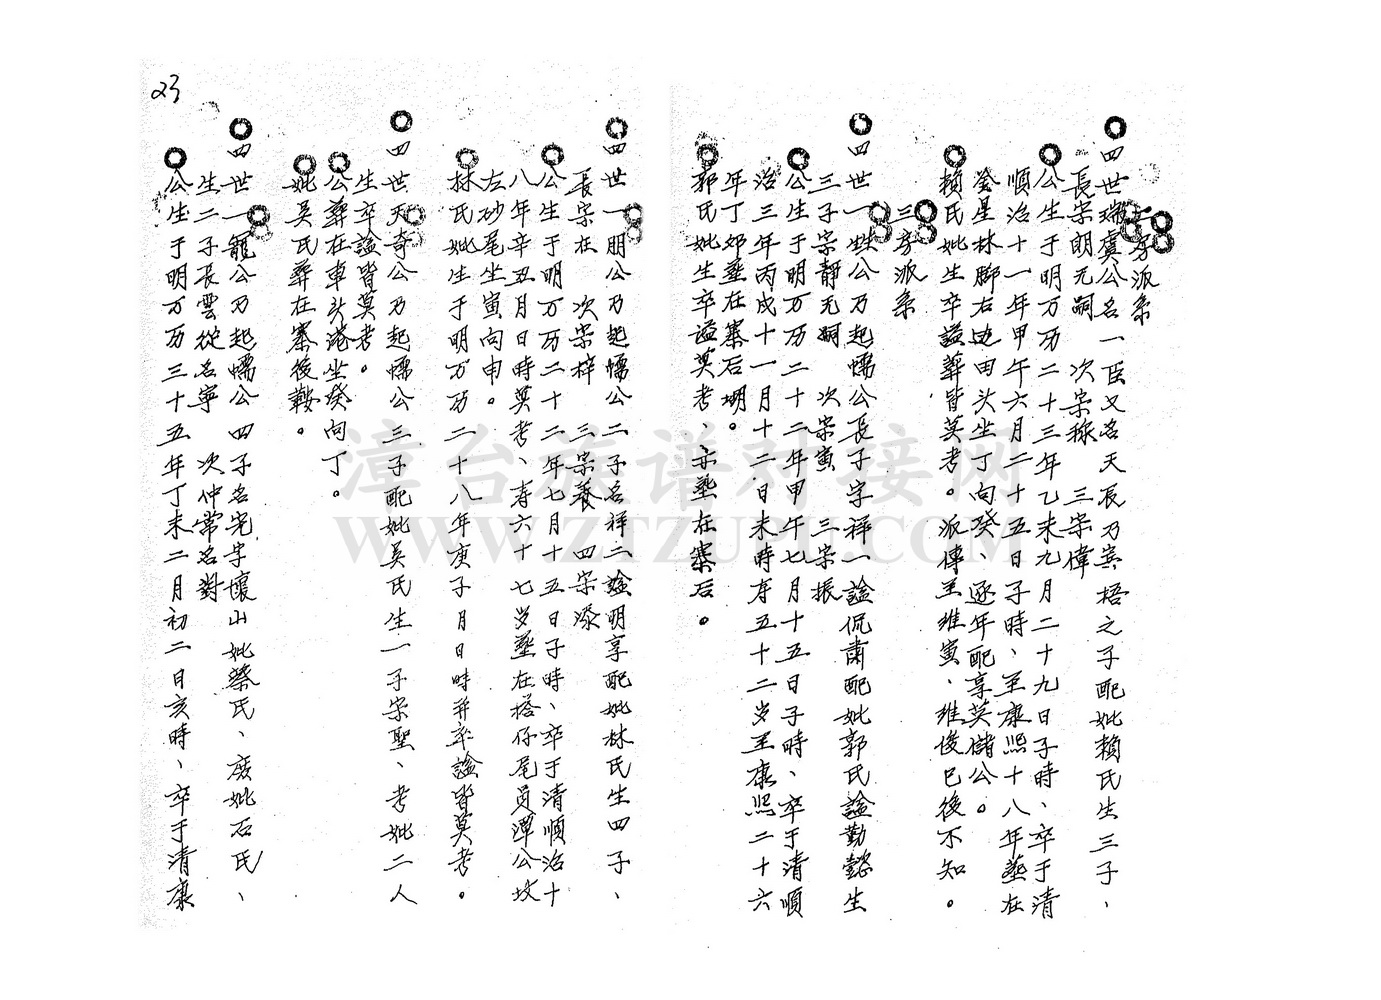 二房派系
四世瑞虞公名一臣又名天辰乃宾梧之子配妣賴氏生三子、
長宗朗无嗣 次宗稼 三宗偉
公生于明万历二十三年乙未九月二十九日子時、卒于清
順治十一年甲午六月二十五日子時、至康熙十八年塟在
釜星林脚右边田头坐丁向癸、逐年配享英儲公。
賴氏妣生卒謚葬皆莫考。派傳至維寅、維俊已後不知。
三房派系
四世一公乃起懦公長子字祥一謚侃肅配妣郭氏謚勤懿生
三子宗靜无嗣 次宗寅 三宗振
公生于明万历二十二年甲午七月十五日子時、卒于清順
治三年丙戌十一月十二日未時存五十二岁至康熙二十六
年丁卯塟在寨石堋。
郭氏妣生卒謚莫考、亦塟在寨石。
四世一朋公乃起懦公二子名祥二謚明享配妣林氏生四子、
長宗在 次宗梓 三宗養 四宗添
公生于明万历二十二年七月十五日子時、卒于清順治十
八年辛丑月日時莫考、寿六十七岁塟在塔仔尾員潭公坟
左砂尾坐寅向申。
林氏妣生于明万历二十八年庚子月日時并卒謚皆莫考。
四世天奇公乃起懦公三子配妣吴氏生一子宗聖、考妣二人
生卒謚皆莫考。
公葬在車头港坐癸向丁。
妣吴氏葬在寨後鞍。
四世一龍公乃起懦公四子名完字懷山妣蔡氏、庶妣石氏、
生二子長雲從名寧 次仲常名對
公生于明万历三十五年丁未二月初二日亥時、卒于清康
23
漳台族谱对接网
WWW.ZTZUPU.COM